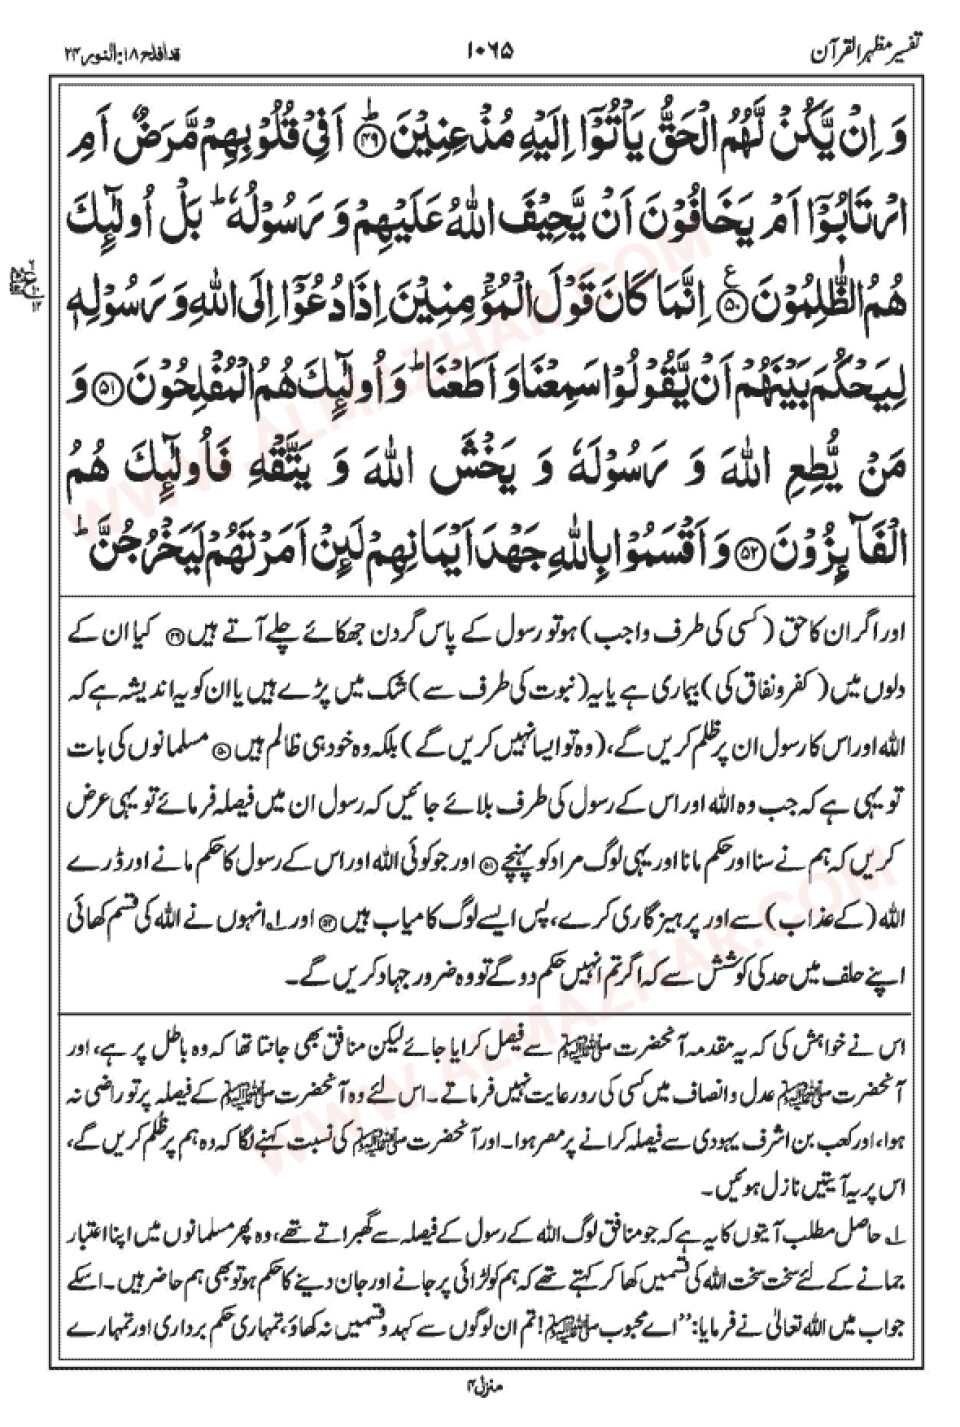 تفسیر مظہر القرآن
۱۰۶۵
قد افلح ۱۸: النور ۲۴
وَ اِنْ يَّكُنْ لَّهُمُ الْحَقُّ يَاْتُوْۤا اِلَيْهِ مُذْعِنِيْنَ ؕ﴿۴۹﴾ اَفِيْ قُلُوْبِهِمْ مَّرَضٌ اَمِ
ارْتَابُوْۤا اَمْ يَخَافُوْنَ اَنْ يَّحِيْفَ اللّٰهُ عَلَيْهِمْ وَ رَسُوْلُهٗ ؕ بَلْ اُولٰٓئِكَ
هُمُ الظّٰلِمُوْنَ ﴿۵۰﴾ اِنَّمَا كَانَ قَوْلَ الْمُؤْمِنِيْنَ اِذَا دُعُوْۤا اِلَى اللّٰهِ وَ رَسُوْلِهٖ
لِيَحْكُمَ بَيْنَهُمْ اَنْ يَّقُوْلُوْا سَمِعْنَا وَ اَطَعْنَا ؕ وَ اُولٰٓئِكَ هُمُ الْمُفْلِحُوْنَ ﴿۵۱﴾ وَ
مَنْ يُّطِعِ اللّٰهَ وَ رَسُوْلَهٗ وَ يَخْشَ اللّٰهَ وَ يَتَّقْهِ فَاُولٰٓئِكَ هُمُ
الْفَآئِزُوْنَ ﴿۵۲﴾ وَ اَقْسَمُوْا بِاللّٰهِ جَهْدَ اَيْمَانِهِمْ لَئِنْ اَمَرْتَهُمْ لَيَخْرُجُنَّ ؕ
اور اگر ان کا حق (کسی کی طرف واجب) ہو تو رسول کے پاس گردن جھکائے چلے آتے ہیں ﴿۴۹﴾ کیا ان کے
دلوں میں (کفر و نفاق کی) بیماری ہے یا یہ (نبوت کی طرف سے) شک میں پڑے ہیں یا ان کو یہ اندیشہ ہے کہ
اللہ اور اس کا رسول ان پر ظلم کریں گے، (وہ تو ایسا نہیں کریں گے) بلکہ وہ خود ہی ظالم ہیں ﴿۵۰﴾ مسلمانوں کی بات
تو یہی ہے کہ جب وہ اللہ اور اس کے رسول کی طرف بلائے جائیں کہ رسول ان میں فیصلہ فرمائے تو یہی عرض
کریں کہ ہم نے سنا اور حکم مانا اور یہی لوگ مراد کو پہنچے ﴿۵۱﴾ اور جو کوئی اللہ اور اس کے رسول کا حکم مانے اور ڈرے
اللہ (کے عذاب) سے اور پرہیز گاری کرے، پس ایسے لوگ کامیاب ہیں ﴿۵۲﴾ اور ۱؎ انہوں نے اللہ کی قسم کھائی
اپنے حلف میں حد کی کوشش سے کہ اگر تم انہیں حکم دو گے تو وہ ضرور جہاد کریں گے۔
اس نے خواہش کی کہ یہ مقدمہ آنحضرت ﷺ سے فیصل کرایا جائے لیکن منافق بھی جانتا تھا کہ وہ باطل پر ہے، اور
آنحضرت ﷺ عدل و انصاف میں کسی کی رو رعایت نہیں فرماتے۔ اس لئے وہ آنحضرت ﷺ کے فیصلہ پر تو راضی نہ
ہوا، اور کعب بن اشرف یہودی سے فیصلہ کرانے پر مصر ہوا۔ اور آنحضرت ﷺ کی نسبت کہنے لگا کہ وہ ہم پر ظلم کریں گے،
اس پر یہ آیتیں نازل ہوئیں۔
۱؎ حاصل مطلب آیتوں کا یہ ہے کہ جو منافق لوگ اللہ کے رسول کے فیصلہ سے گھبراتے تھے، وہ پھر مسلمانوں میں اپنا اعتبار
جمانے کے لئے سخت سخت اللہ کی قسمیں کھا کر کہتے تھے کہ ہم کو لڑائی پر جانے اور جان دینے کا حکم ہو تو بھی ہم حاضر ہیں۔ اسکے
جواب میں اللہ تعالیٰ نے فرمایا: "اے محبوب ﷺ! تم ان لوگوں سے کہدو قسمیں نہ کھاؤ، تمہاری حکم برداری اور تمہارے
منزل ۴
WWW.ALMAZHAR.COM
WWW.ALMAZHAR.COM